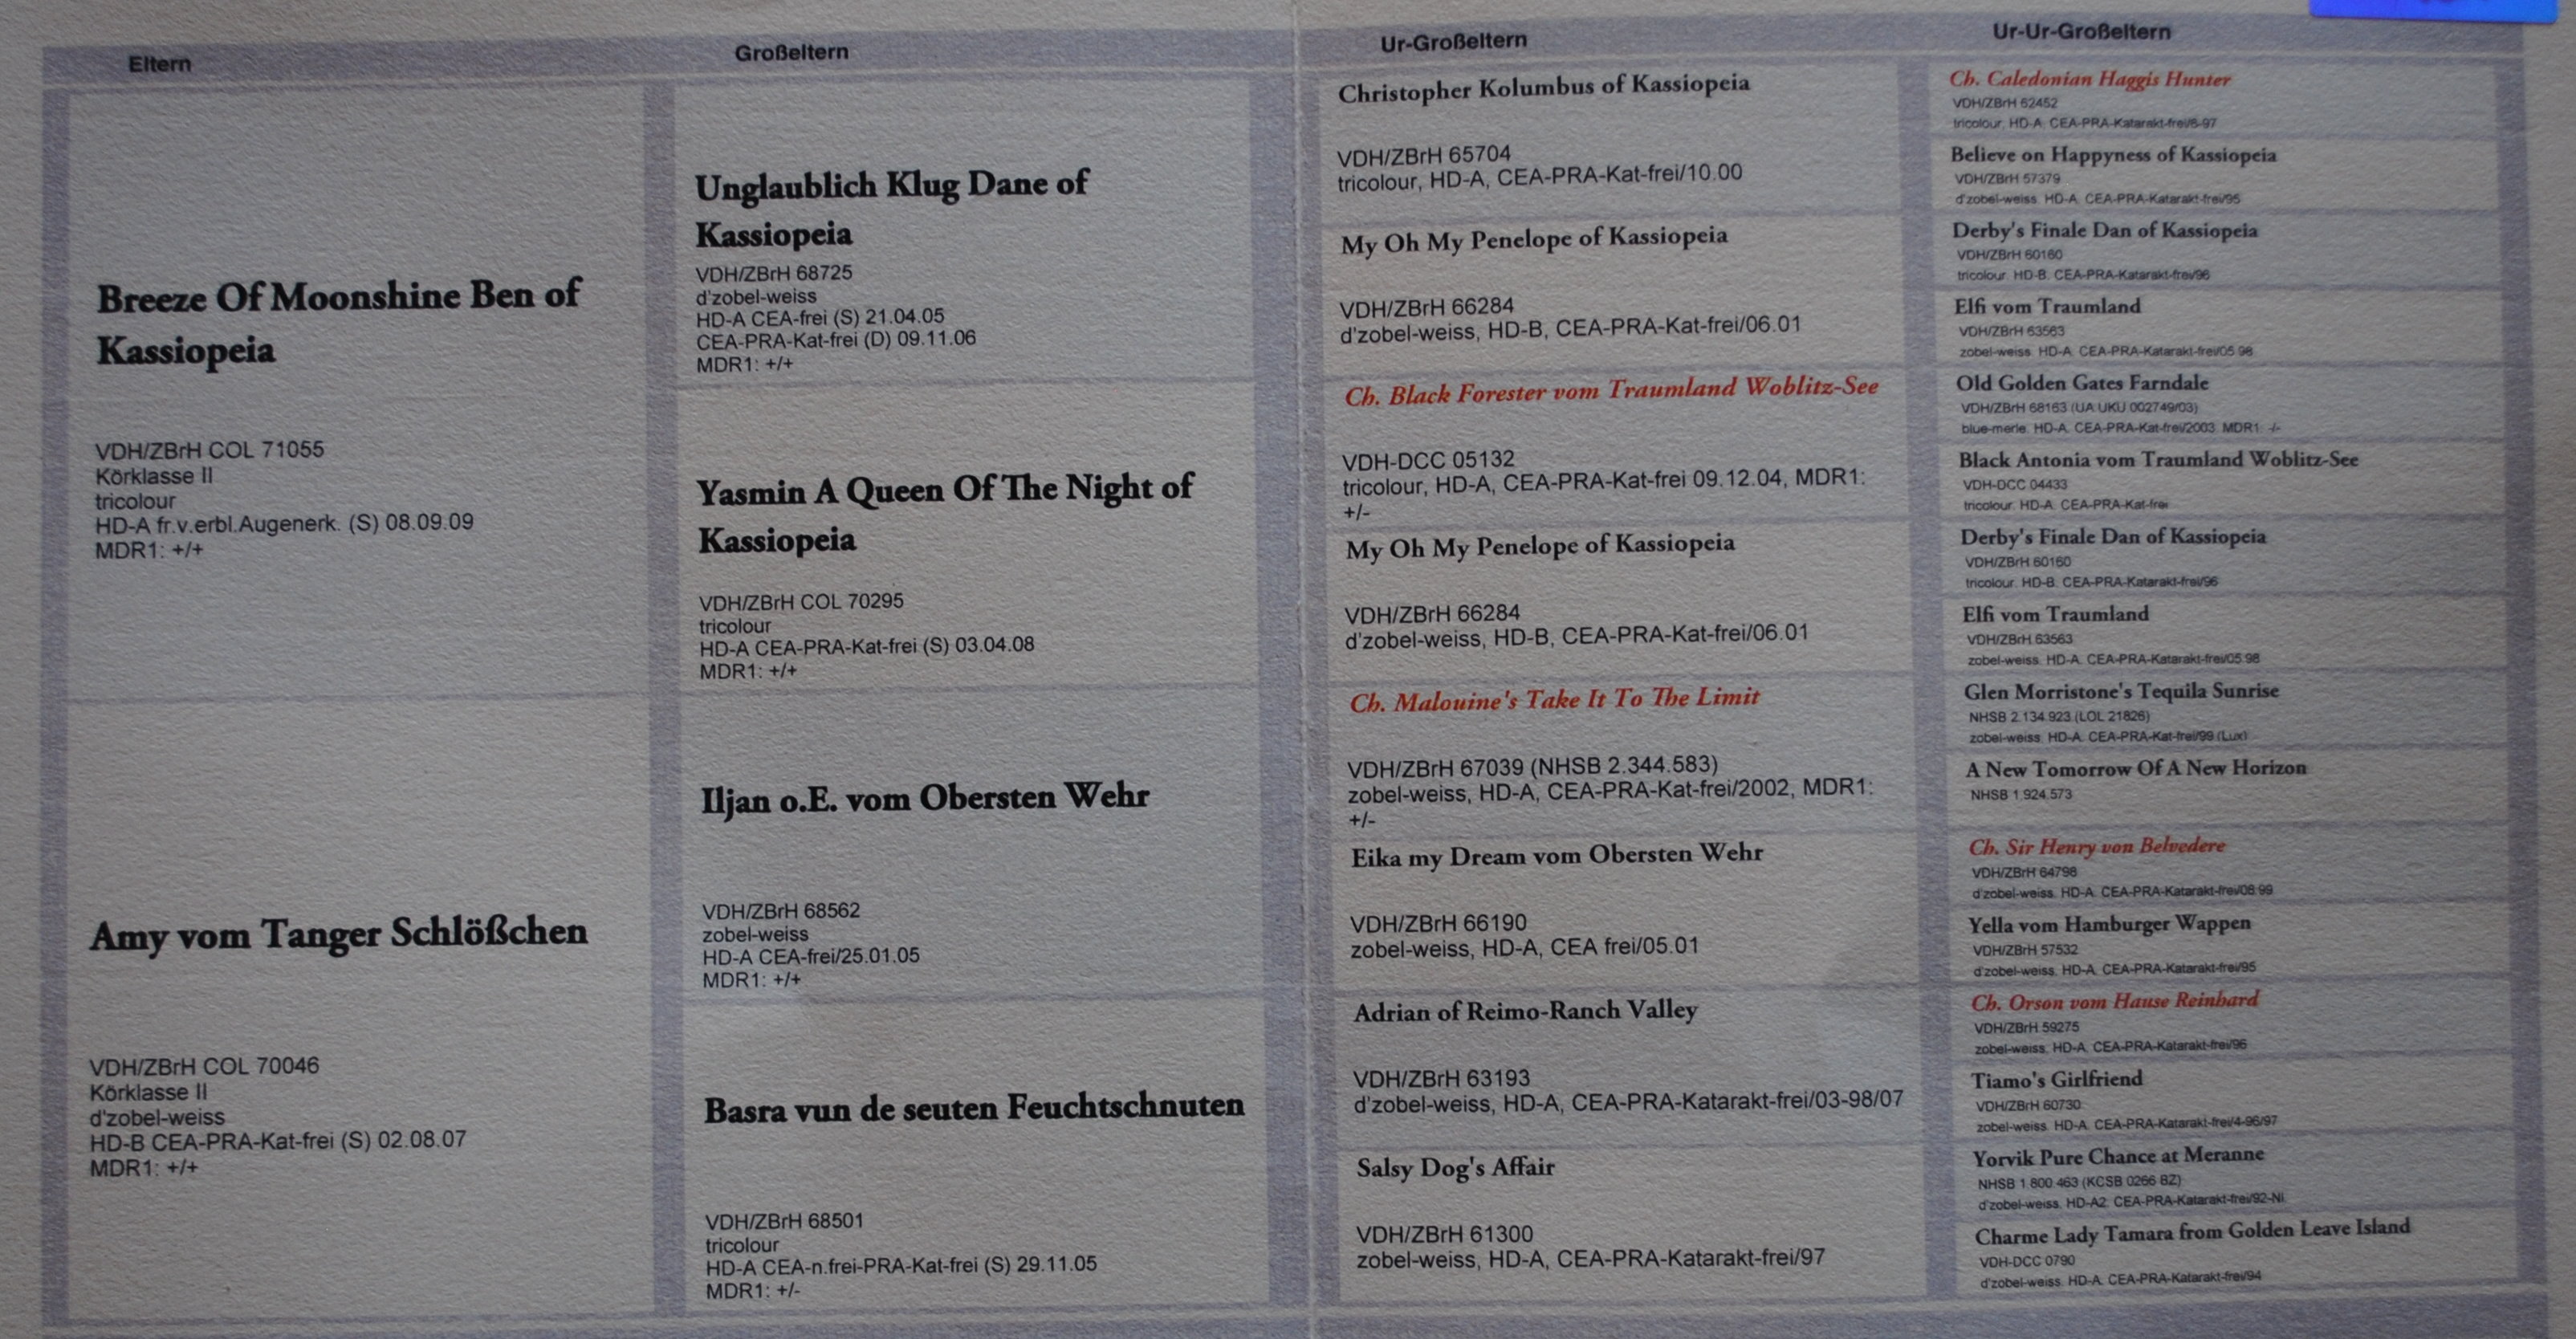 Eltern
Großeltern
Ur-Großeltern
Ur-Ur-Großeltern
Breeze Of Moonshine Ben of
Kassiopeia
VDH/ZBrH COL 71055
Körklasse II
tricolour
HD-A fr.v.erbl.Augenerk. (S) 08.09.09
MDR1: +/+
Amy vom Tanger Schlößchen
VDH/ZBrH COL 70046
Körklasse II
d'zobel-weiss
HD-B CEA-PRA-Kat-frei (S) 02.08.07
MDR1: +/+
Unglaublich Klug Dane of
Kassiopeia
VDH/ZBrH 68725
d'zobel-weiss
HD-A CEA-frei (S) 21.04.05
CEA-PRA-Kat-frei (D) 09.11.06
MDR1: +/+
Yasmin A Queen Of The Night of
Kassiopeia
VDH/ZBrH COL 70295
tricolour
HD-A CEA-PRA-Kat-frei (S) 03.04.08
MDR1: +/+
Iljan o.E. vom Obersten Wehr
VDH/ZBrH 68562
zobel-weiss
HD-A CEA-frei/25.01.05
MDR1: +/+
Basra vun de seuten Feuchtschnuten
VDH/ZBrH 68501
tricolour
HD-A CEA-n.frei-PRA-Kat-frei (S) 29.11.05
MDR1: +/-
Christopher Kolumbus of Kassiopeia
VDH/ZBrH 65704
tricolour, HD-A, CEA-PRA-Kat-frei/10.00
My Oh My Penelope of Kassiopeia
VDH/ZBrH 66284
d'zobel-weiss, HD-B, CEA-PRA-Kat-frei/06.01
Ch. Black Forester vom Traumland Woblitz-See
VDH-DCC 05132
tricolour, HD-A, CEA-PRA-Kat-frei 09.12.04, MDR1:
+/-
My Oh My Penelope of Kassiopeia
VDH/ZBrH 66284
d'zobel-weiss, HD-B, CEA-PRA-Kat-frei/06.01
Ch. Malouine's Take It To The Limit
VDH/ZBrH 67039 (NHSB 2.344.583)
zobel-weiss, HD-A, CEA-PRA-Kat-frei/2002, MDR1:
+/-
Eika my Dream vom Obersten Wehr
VDH/ZBrH 66190
zobel-weiss, HD-A, CEA frei/05.01
Adrian of Reimo-Ranch Valley
VDH/ZBrH 63193
d'zobel-weiss, HD-A, CEA-PRA-Katarakt-frei/03-98/07
Salsy Dog's Affair
VDH/ZBrH 61300
zobel-weiss, HD-A, CEA-PRA-Katarakt-frei/97
Ch. Caledonian Haggis Hunter
VDH/ZBrH 62452
tricolour, HD-A, CEA-PRA-Katarakt-frei/6-97
Believe on Happyness of Kassiopeia
VDH/ZBrH 57379
d'zobel-weiss, HD-A, CEA-PRA-Katarakt-frei/95
Derby's Finale Dan of Kassiopeia
VDH/ZBrH 60160
tricolour, HD-B, CEA-PRA-Katarakt-frei/96
Elfi vom Traumland
VDH/ZBrH 63563
zobel-weiss, HD-A, CEA-PRA-Katarakt-frei/05.98
Old Golden Gates Farndale
VDH/ZBrH 68163 (UA.UKU 002749/03)
blue-merle, HD-A, CEA-PRA-Kat-frei/2003, MDR1: -/-
Black Antonia vom Traumland Woblitz-See
VDH-DCC 04433
tricolour, HD-A, CEA-PRA-Kat-frei
Derby's Finale Dan of Kassiopeia
VDH/ZBrH 60160
tricolour, HD-B, CEA-PRA-Katarakt-frei/96
Elfi vom Traumland
VDH/ZBrH 63563
zobel-weiss, HD-A, CEA-PRA-Katarakt-frei/05.98
Glen Morristone's Tequila Sunrise
NHSB 2.134.923 (LOL 21826)
zobel-weiss, HD-A, CEA-PRA-Kat-frei/99 (Lux)
A New Tomorrow Of A New Horizon
NHSB 1.924.573
Ch. Sir Henry von Belvedere
VDH/ZBrH 64798
d'zobel-weiss, HD-A, CEA-PRA-Katarakt-frei/08.99
Yella vom Hamburger Wappen
VDH/ZBrH 57532
d'zobel-weiss, HD-A, CEA-PRA-Katarakt-frei/95
Ch. Orson vom Hause Reinhard
VDH/ZBrH 59275
zobel-weiss, HD-A, CEA-PRA-Katarakt-frei/96
Tiamo's Girlfriend
VDH/ZBrH 60730
zobel-weiss, HD-A, CEA-PRA-Katarakt-frei/4-96/97
Yorvik Pure Chance at Meranne
NHSB 1.800.463 (KCSB 0266 BZ)
d'zobel-weiss, HD-A2, CEA-PRA-Katarakt-frei/92-NL
Charme Lady Tamara from Golden Leave Island
VDH-DCC 0790
d'zobel-weiss, HD-A, CEA-PRA-Katarakt-frei/94